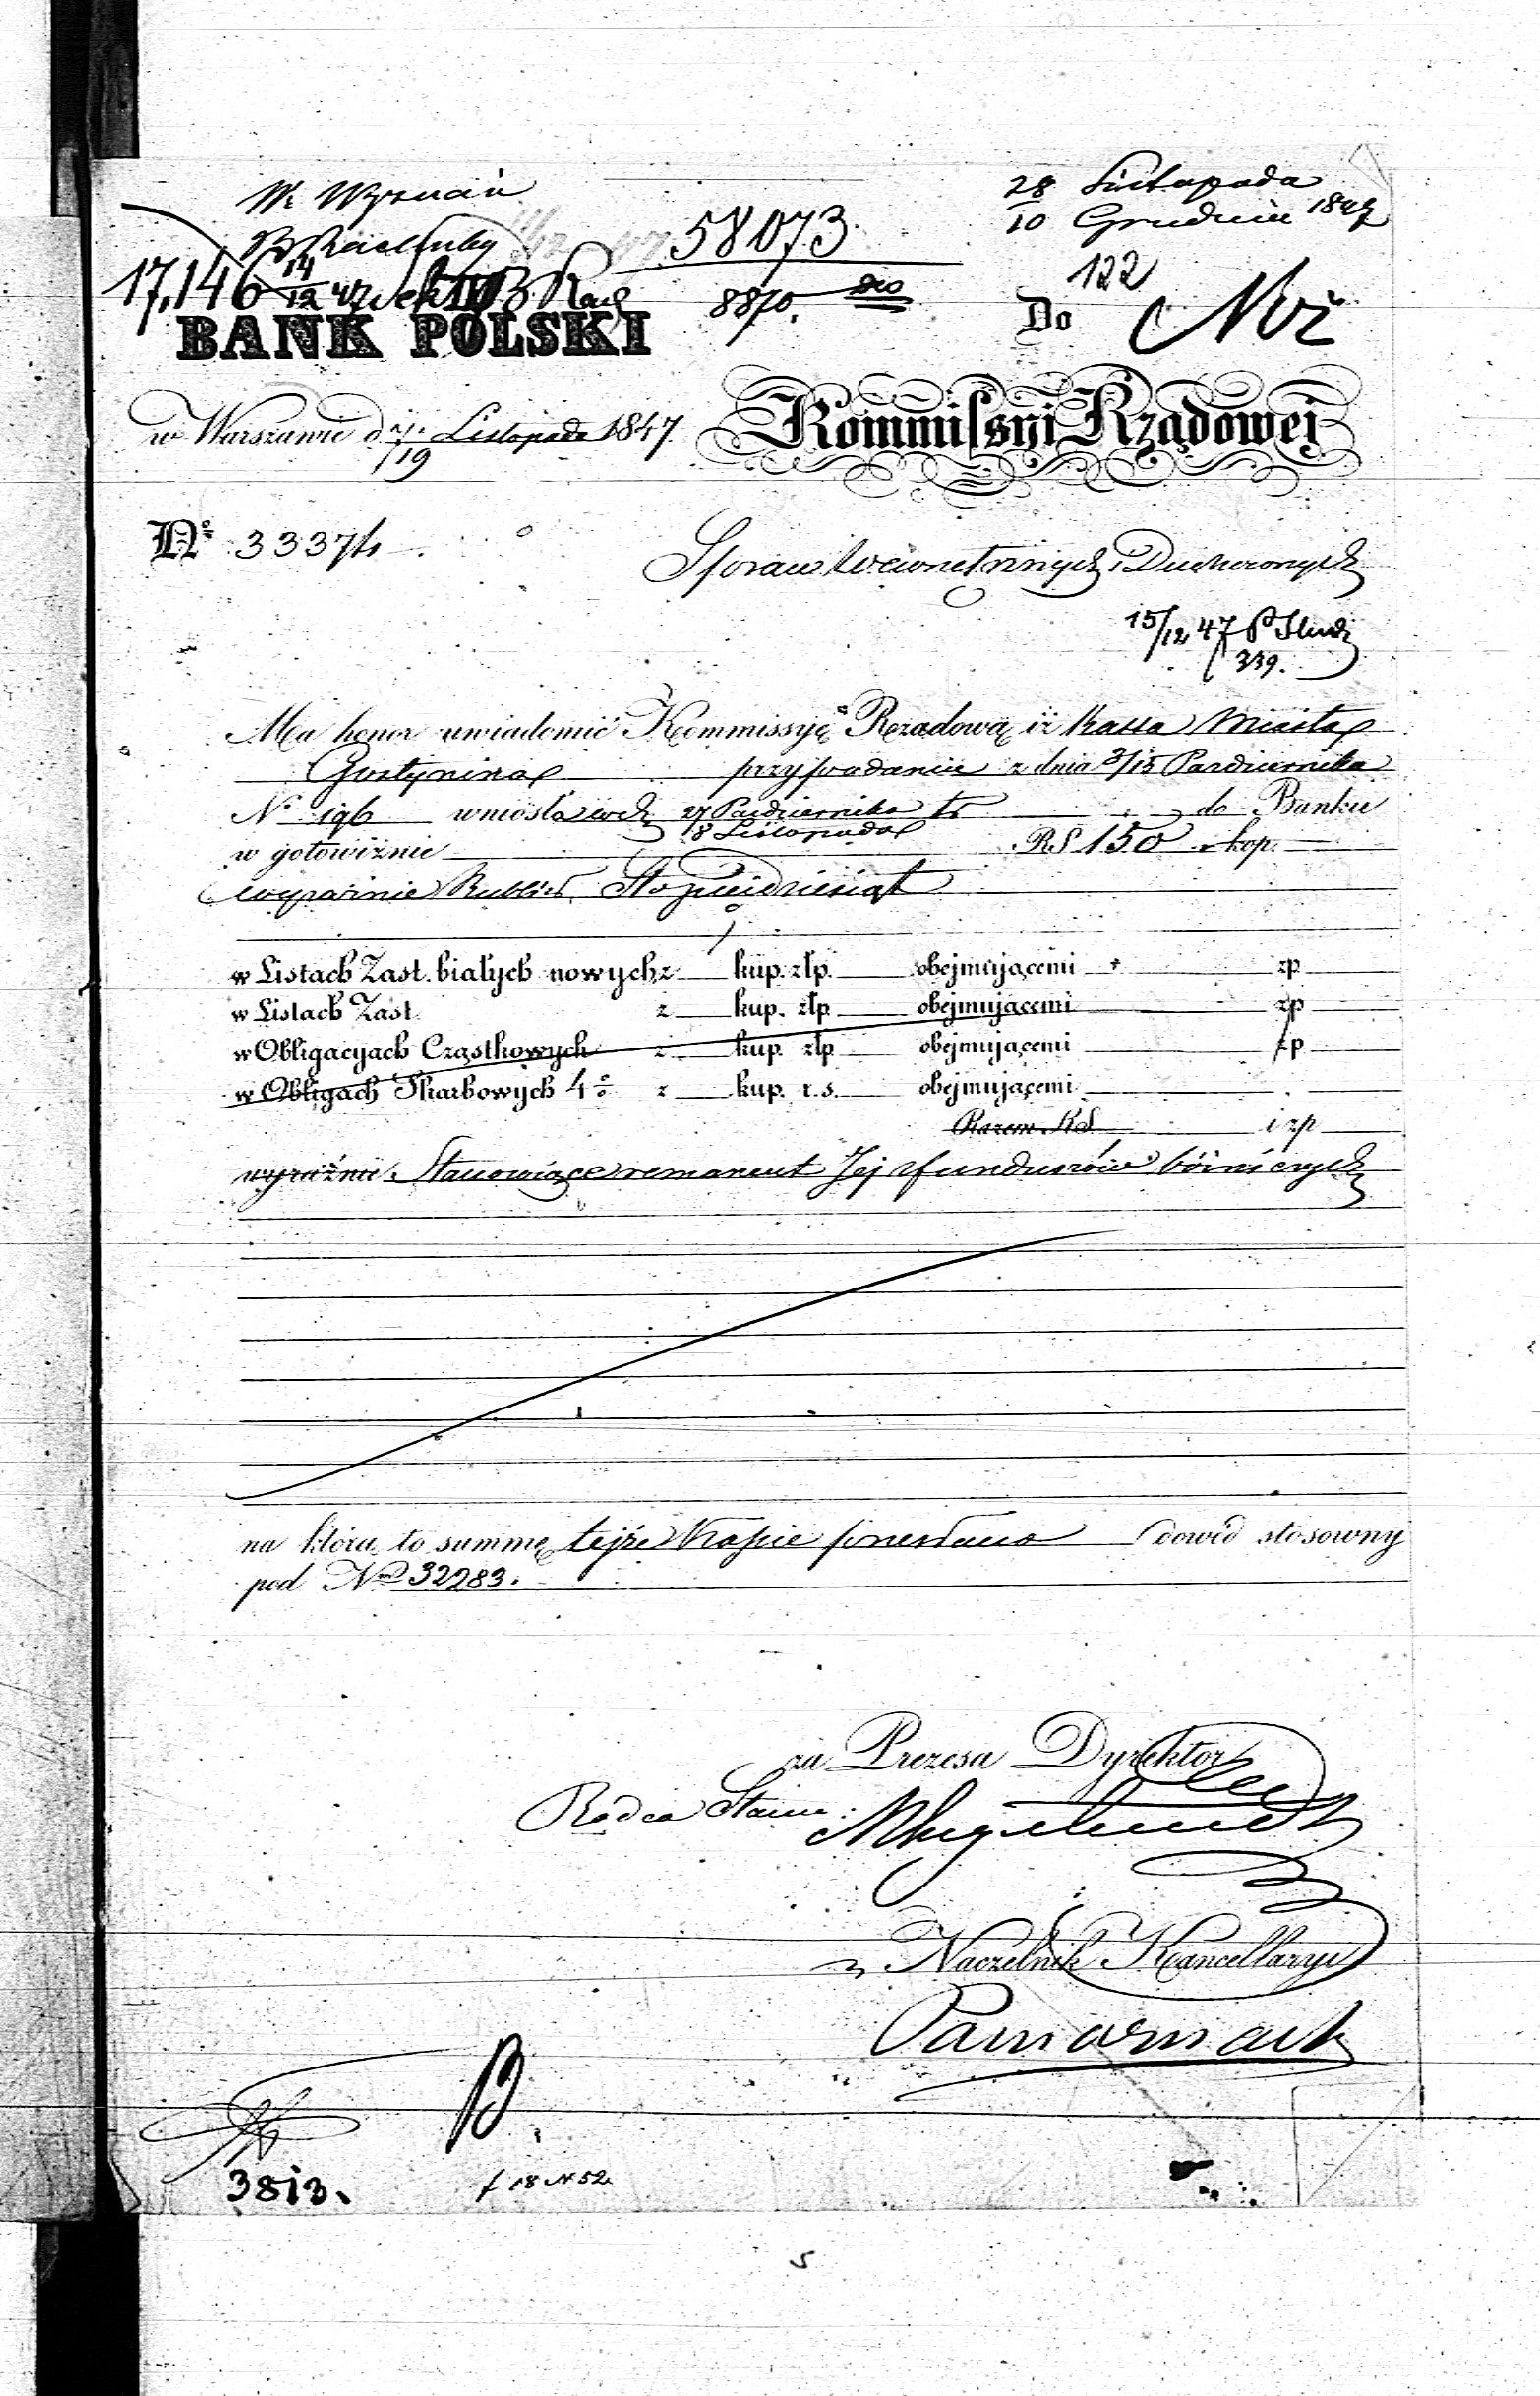 28 Listopada
10 Grudnia 1847
W. Wyznań
58073
122
17,146 14/12 47
8870.
BANK POLSKI
Do
w Warszawie d. 7/19 Listopada 1847
Kommissyi Rządowej
No 33374.
Spraw Wewnętrznych i Duchownych
15/12 47
339.
Ma honor uwiadomić Kommissyję Rządową iż Kassa Miasta
Gostynina przy podaniu z dnia 3/15 Pazdziernika
No 196 wniosła w d. 27 Pazdziernika
8 Listopada do Banku
w gotowiznie RS 150 kop.
wyraźnie Rubli s. Sto pięćdziesiąt
w Listach Zast. białych nowych z kup. złp. obejmującemi zp
w Listach Zast. z kup. złp. obejmującemi zp
w Obligacyjach Cząstkowych z kup. złp. obejmującemi zp
w Obligach Skarbowych 4 % z kup. r. s. obejmującemi
Razem RS i zp
wyraźnie Stanowiące remanent Jej funduszów bóżniczych
na którą to summę tejże Kassie przesłano dowód stosowny
pod Nem 32283.
za Prezesa Dyrektor
Radca Stanu:
Naczelnik Kancellaryi
3813.
f 18 N 52
5